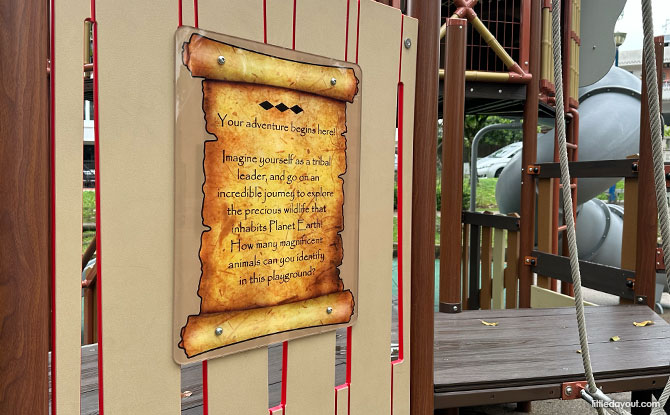 Your adventure begins here!
Imagine yourself as a tribal
leader, and go on an
incredible journey to explore
the precious wildlife that
inhabits Planet Earth!
How many magnificent
animals can you identify
in this playground?
littledayout.com